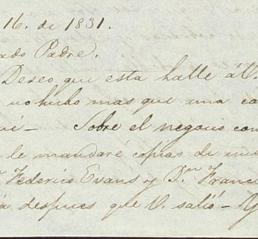 16. de 1831.
ado Padre.
Deseo que esta halle á V.
no hubo mas que una ca
Sobre el negocio con
le mandaré copias de
Federico Evans y Dn. Franc
a despues que V. salio